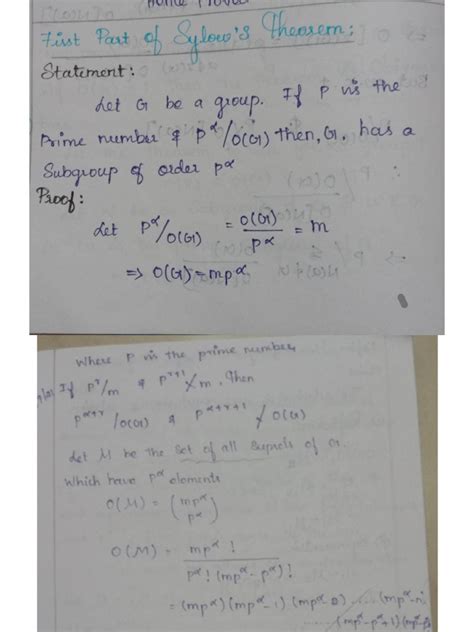 First Part of Sylow's Theorem:
Statement:
Let G be a group. If P is the
Prime number & p^α/O(G) then, G, has a
Subgroup of order p^α
Proof:
Let p^α/O(G) = O(G)/p^α = m
⇒ O(G) = mp^α
Where P is the prime number,
If p^r/m & p^{r+1} ∤ m, Then
p^{α+r}/O(G) & p^{α+r+1} ∤ O(G)
Let M be the Set of all of G.
Which have p^α elements
O(M) = (mp^α p^α)
O(M) = mp^α! / p^α! (mp^α - p^α)!
= (mp^α)(mp^α-1)(mp^α